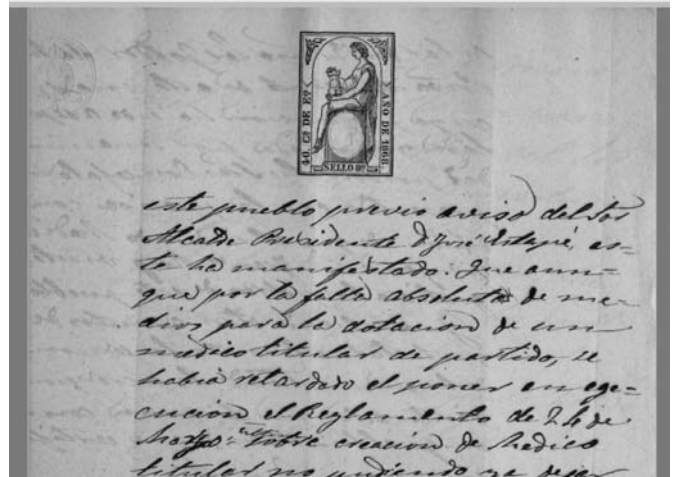 40. Cs DE Eo
AÑO DE 1868.
SELLO 9o
este pueblo previo aviso del Sor
Alcalde Presidente D. José Estapé, es=
te ha manifestado: Que aun=
que por la falta absoluta de me=
dios para la dotacion de un
medico titular de partido, se
habia retardado el poner en ege=
cucion el Reglamento de 24 de
sobre creacion de Medico
titular no pudiendo ya dejar